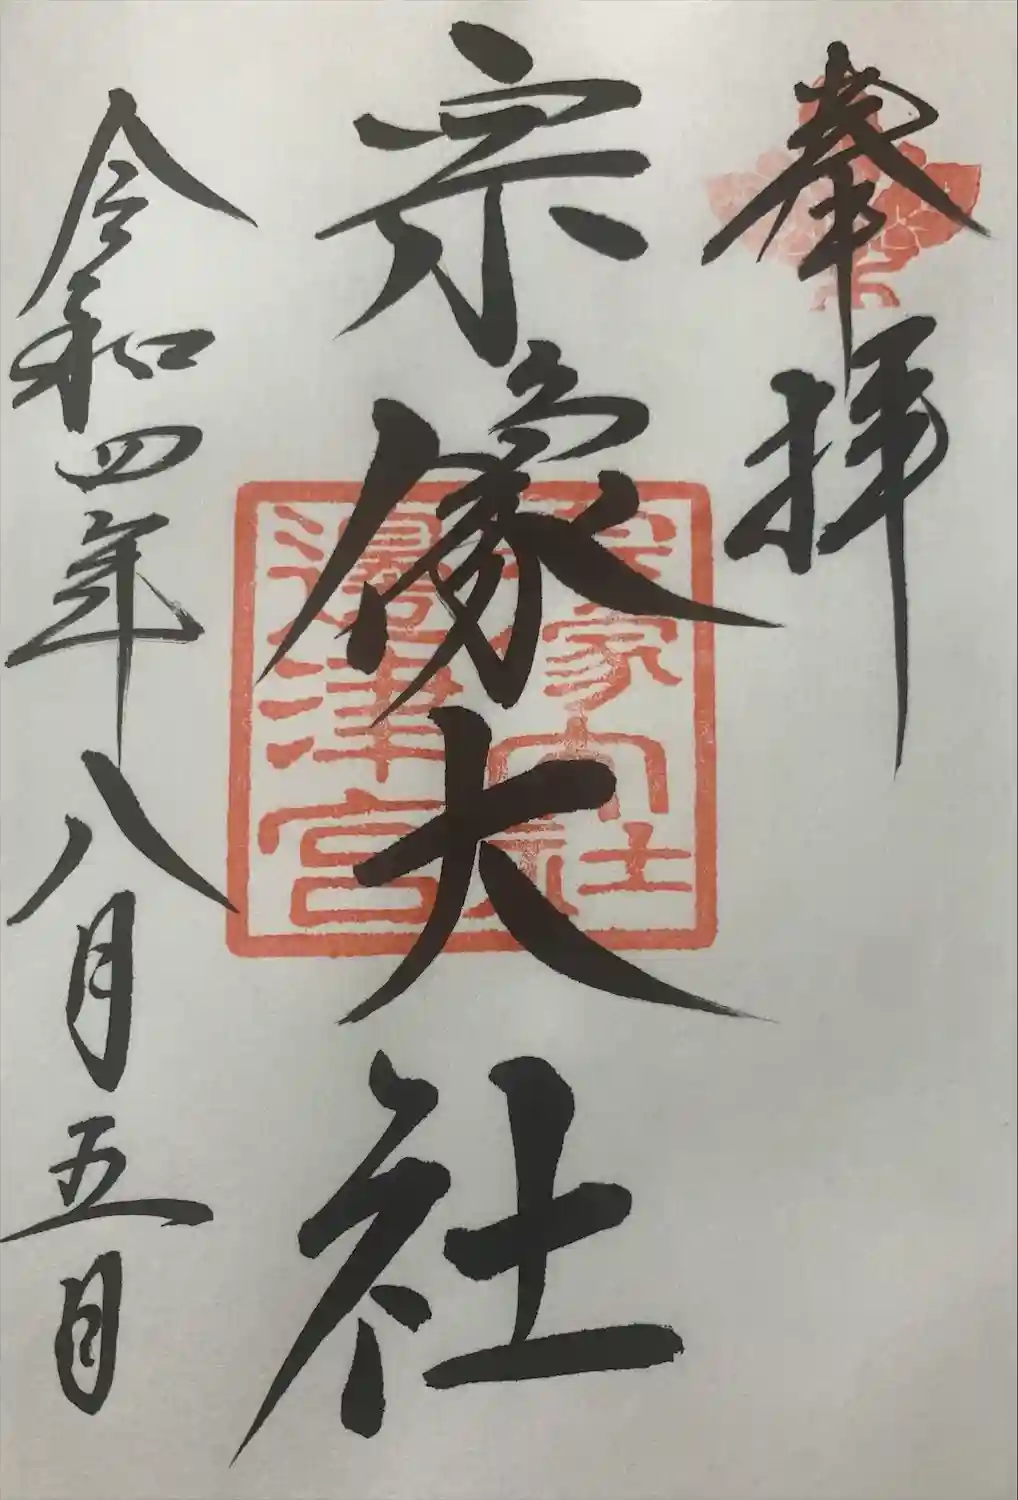 奉拝
宗像大社
令和四年八月五日
邊津宮